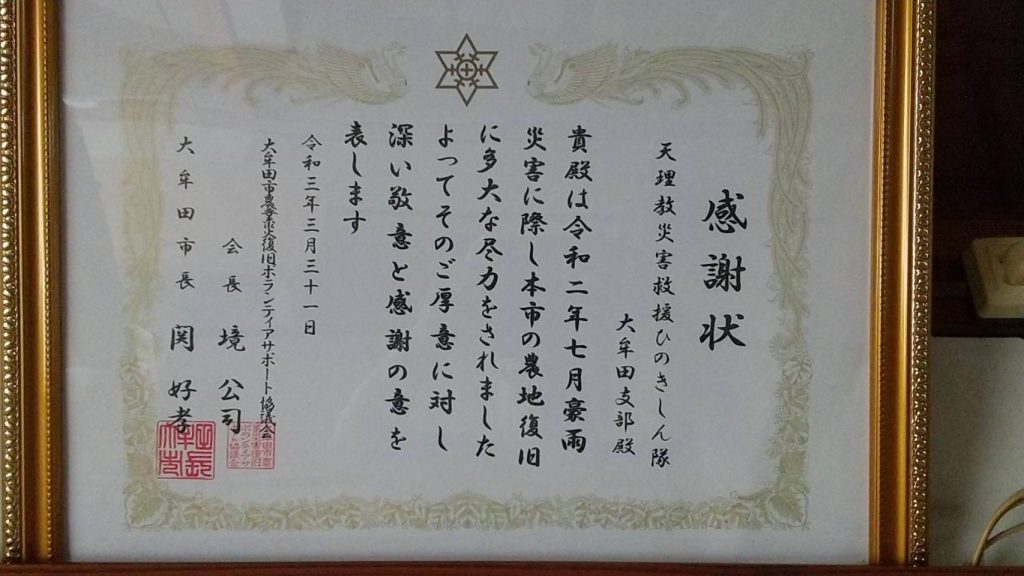 感謝状
天理教災害救援ひのきしん隊
大牟田支部殿
貴殿は令和二年七月豪雨
災害に際し本市の農地復旧
に多大な尽力をされました
よってそのご厚意に対し
深い敬意と感謝の意を
表します
令和三年三月三十一日
大牟田市農業災害復旧ボランティアサポート協議会
会長 境 公司
大牟田市長 関 好孝